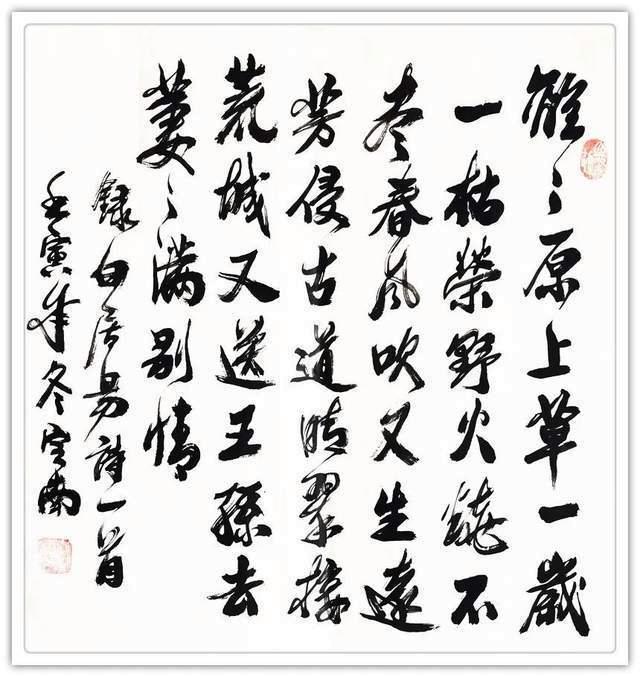 離々原上草一歲
一枯榮野火燒不
盡春風吹又生遠
芳侵古道晴翠接
荒城又送王孫去
萋々滿別情
錄白居易詩一首
壬寅年冬宝南